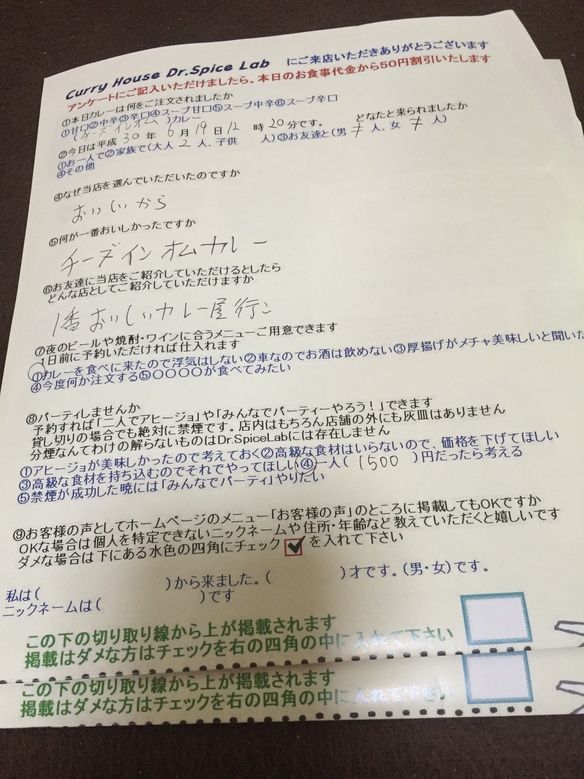 Curry House Dr.Spice Lab にご来店いただきありがとうございます
アンケートにご記入いただけましたら、本日のお食事代金から50円割引いたします
①本日カレーは何をご注文されましたか
①甘口②中辛③辛口④スープ甘口⑤スープ中辛⑥スープ辛口
(チーズインオム)カレー
②今日は平成 30 年 6 月 19 日 12 時 20 分です。 どなたと来られましたか
①お一人で②家族で(大人 2 人、子供 人)③お友達と(男 人、女 人)
④その他
④なぜ当店を選んでいただいたのですか
おいしいから
⑤何が一番おいしかったですか
チーズインオムカレー
⑥お友達に当店をご紹介していただけるとしたら
どんな店としてご紹介していただけますか
1番おいしいカレー屋行こ
⑦夜のビールや焼酎・ワインに合うメニューご用意できます
1日前に予約いただければ仕入れます
①カレーを食べに来たので浮気はしない②車なのでお酒は飲めない③厚揚げがメチャ美味しいと聞いた
④今度何か注文する⑤〇〇〇〇が食べてみたい
⑧パーティしませんか
予約すれば「二人でアヒージョ」や「みんなでパーティーやろう!」できます
貸し切りの場合でも絶対に禁煙です。店内はもちろん店舗の外にも灰皿はありません
分煙なんてわけの解らないものはDr.SpiceLabには存在しません
①アヒージョが美味しかったので考えておく②高級な食材はいらないので、価格を下げてほしい
③高級な食材を持ち込むのでそれでやってほしい④一人(1500)円だったら考える
⑤禁煙が成功した暁には「みんなでパーティ」やりたい
⑨お客様の声としてホームページのメニュー「お客様の声」のところに掲載してもOKですか
OKな場合は個人を特定できないニックネームや住所・年齢など教えていただくと嬉しいです
ダメな場合は下にある水色の四角にチェック を入れて下さい
私は( )から来ました。( )才です。(男・女)です。
ニックネームは( )です
この下の切り取り線から上が掲載されます
掲載はダメな方はチェックを右の四角の中に入れて下さい
この下の切り取り線から上が掲載されます
掲載はダメな方はチェックを右の四角の中に入れて下さい